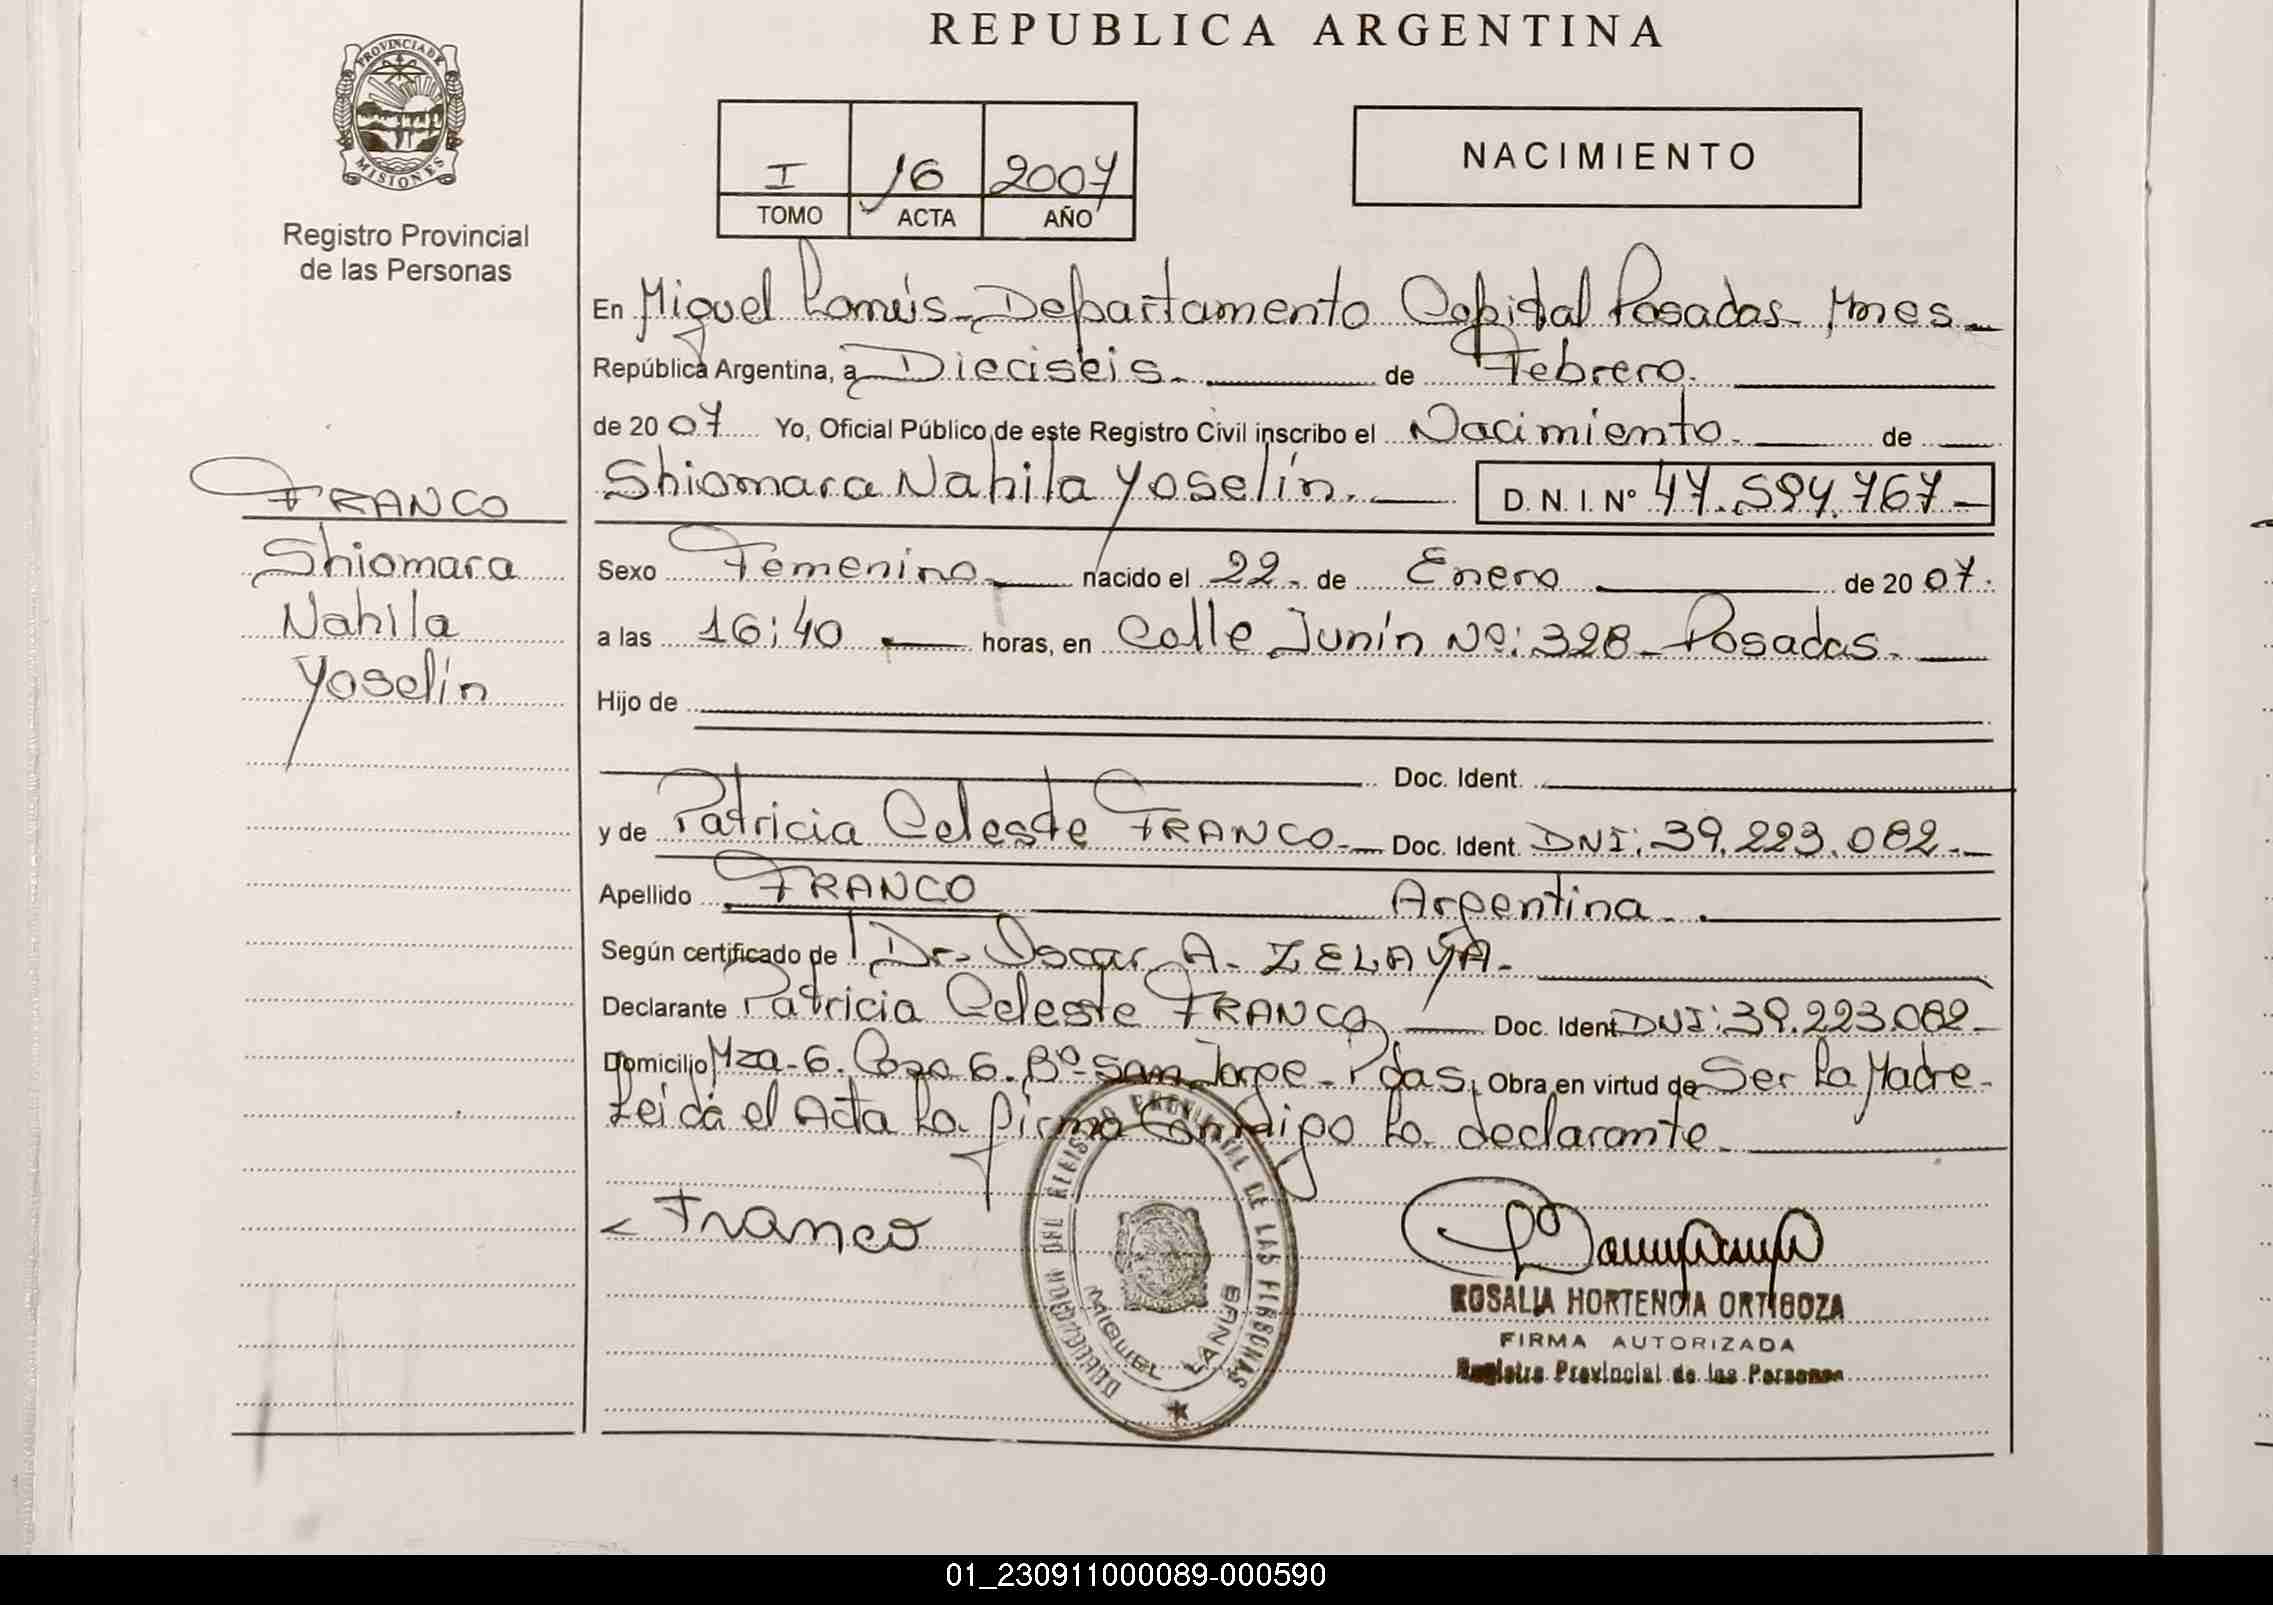 REPUBLICA ARGENTINA
PROVINCIA DE
MISIONES
Registro Provincial
de las Personas
I 16 2007
TOMO ACTA AÑO
NACIMIENTO
En Miguel Lanús - Departamento Capital Posadas - Mnes -
República Argentina, a Dieciseis. de Febrero.
de 2007 Yo, Oficial Público de este Registro Civil inscribo el Nacimiento. de
Shiomara Nahila Yoselín. D. N. I. Nº 47.594.767-
FRANCO
Shiomara
Nahila
Yoselín
Sexo Femenino nacido el 22. de Enero de 2007.
a las 16:40 horas, en Calle Junín Nº: 328 - Posadas.
Hijo de
Doc. Ident.
y de Patricia Celeste FRANCO. Doc. Ident. DNI: 39.223.082.-
Apellido FRANCO Argentina.
Según certificado de Dr. Oscar A. ZELAYA.
Declarante Patricia Celeste FRANCO Doc. Ident DNI: 39.223.082-
Domicilio Mza-6. Casa 6. Bº San Jorge - Pdas. Obra en virtud de Ser La Madre-
Leida el Acta La firma Conmigo La declarante
Franco
DELEGACION DEL REGISTRO PROVINCIAL DE LAS PERSONAS
MIGUEL LANUS
ROSALIA HORTENCIA ORTIGOZA
FIRMA AUTORIZADA
Registro Provincial de las Personas
01_230911000089-000590